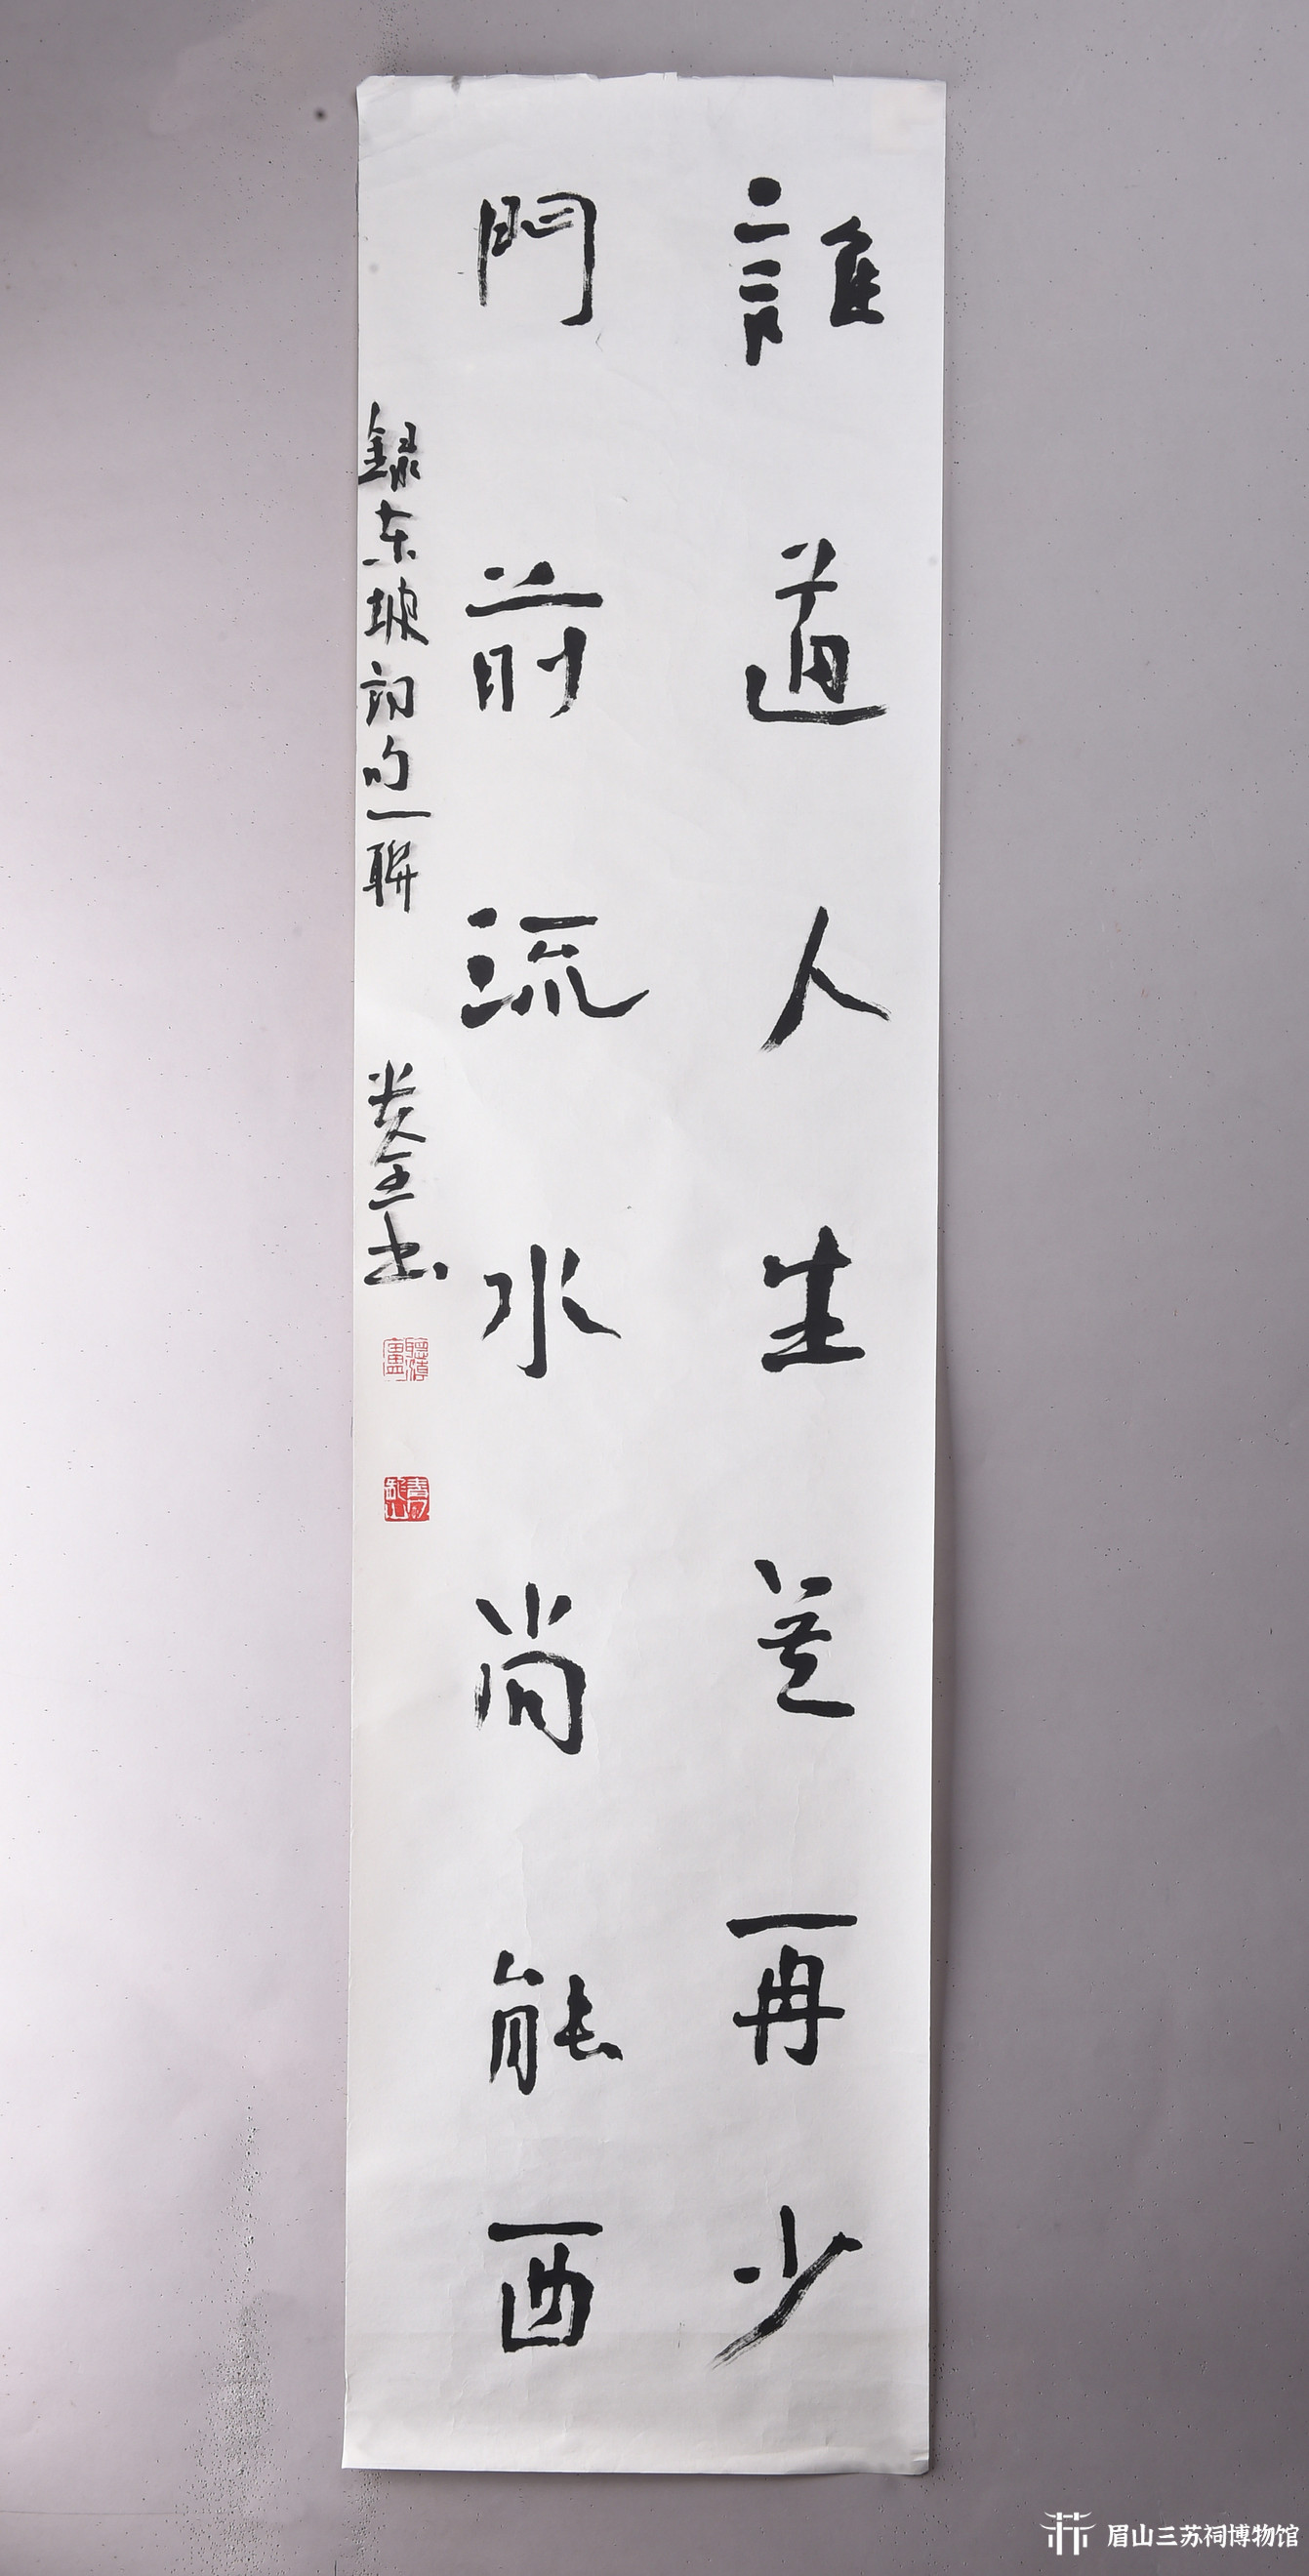 誰道人生芝再少
門前流水尚能西
録东坡詞句一聯
书
聽濤
眉山三苏祠博物馆